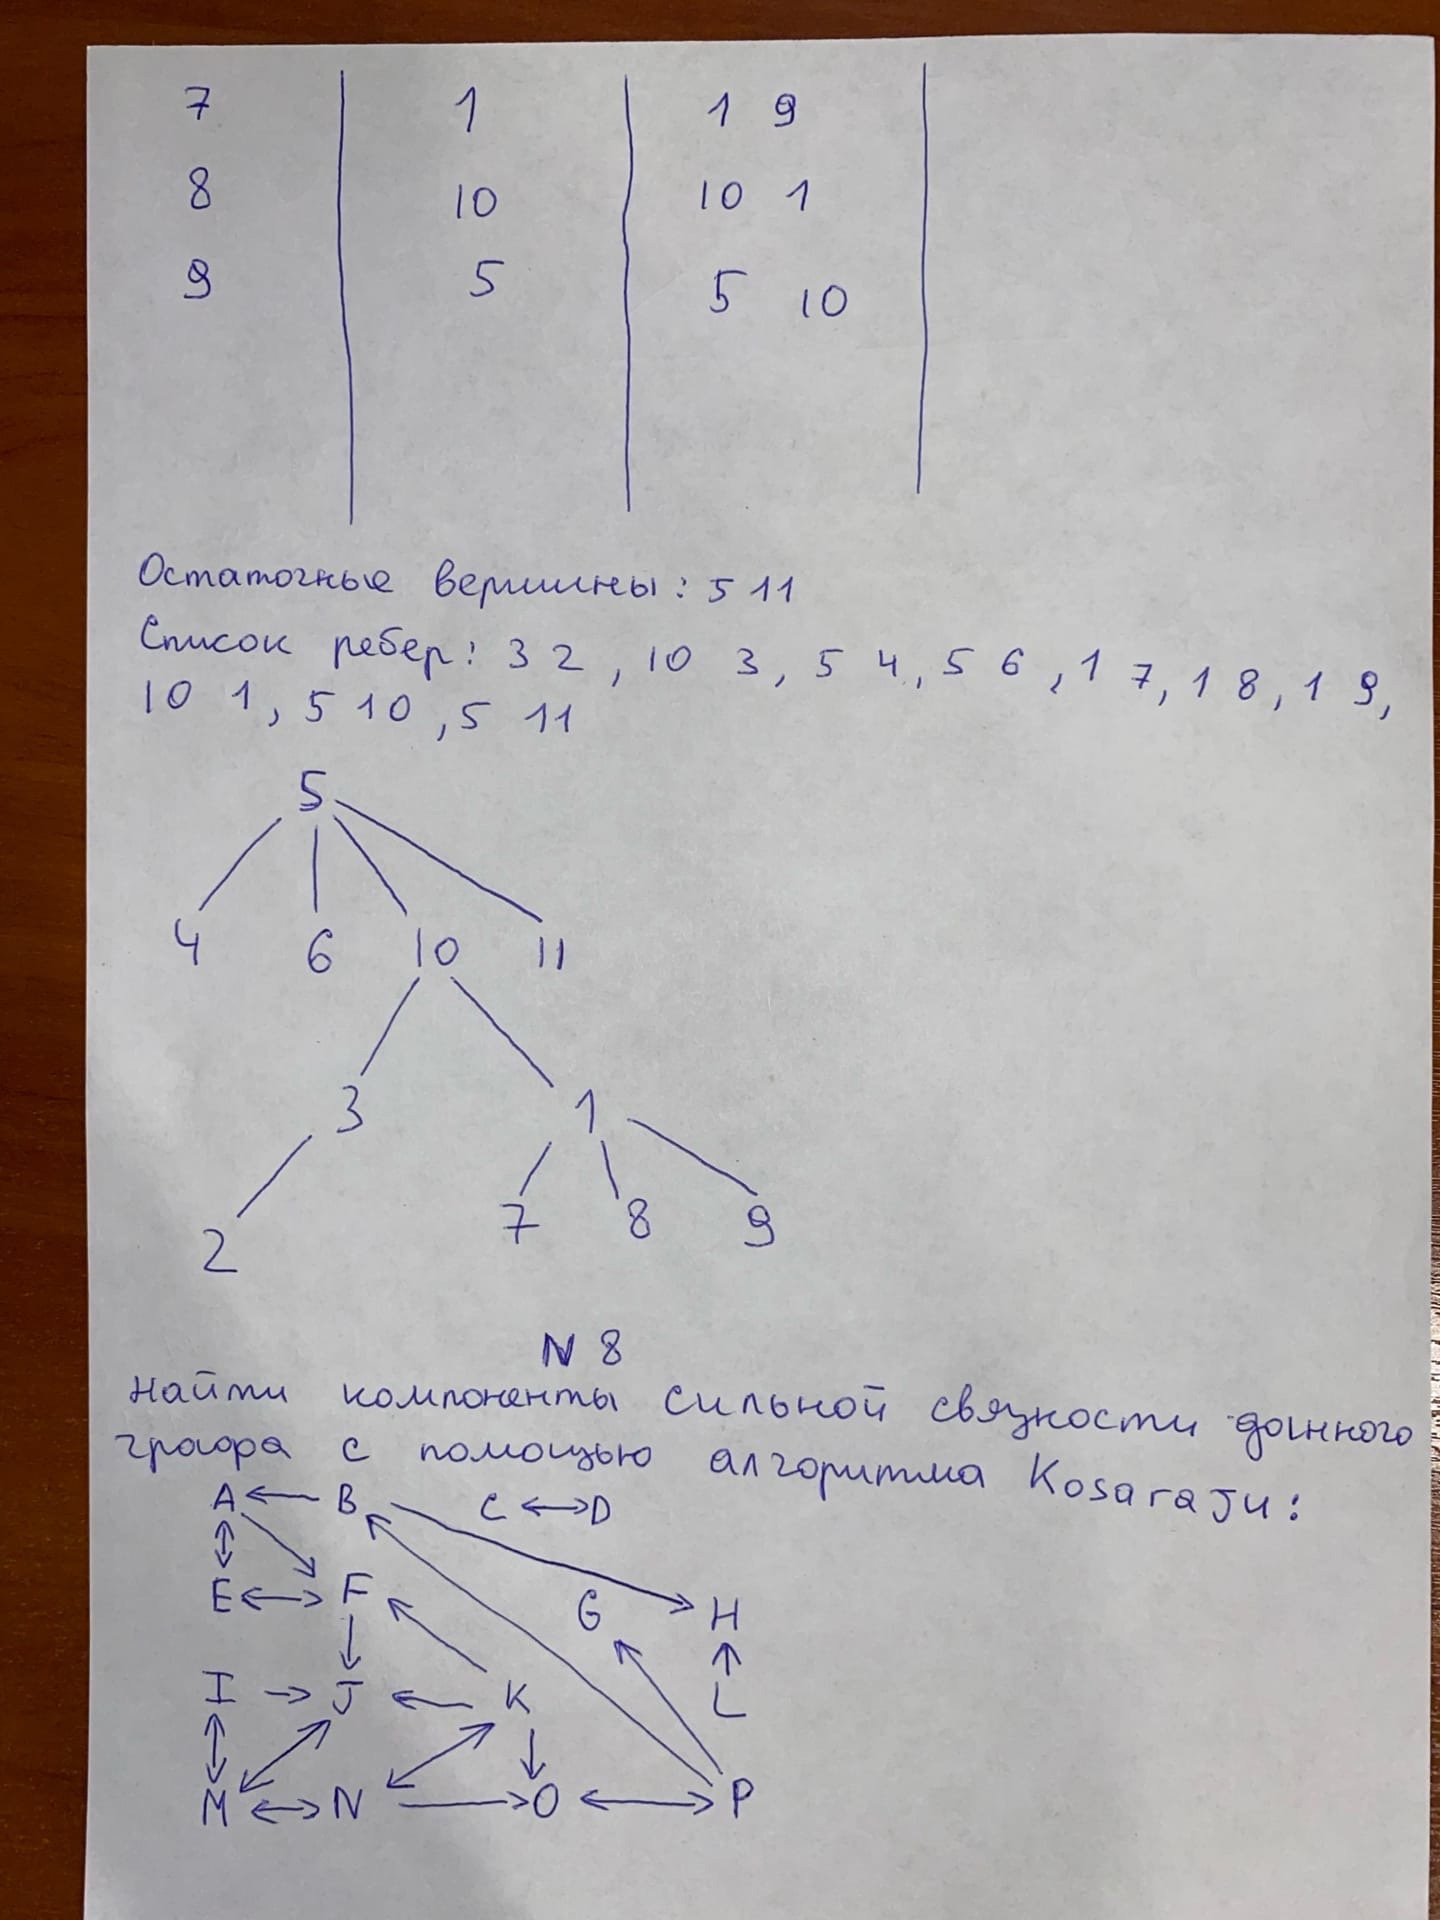 7 1 1 9
8 10 10 1
9 5 5 10
Остаточные вершины: 5 11
Список ребер: 3 2, 10 3, 5 4, 5 6, 1 7, 1 8, 1 9,
10 1, 5 10, 5 11
5
4 6 10 11
3 1
2 7 8 9
N 8
Найти компоненты сильной связности данного
графа с помощью алгоритма Kosaraju:
A B C D
E F G H
I J K L
M N O P